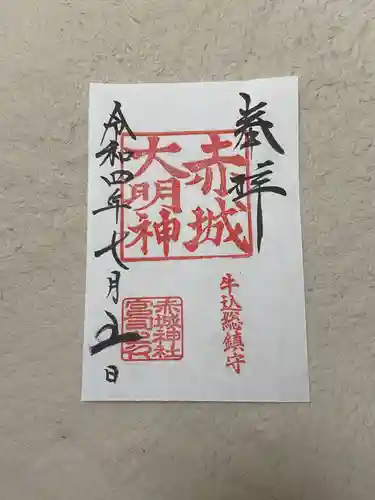 奉拝
赤城
大明神
牛込総鎮守
赤城神社
宮司之印
令和四年七月五日